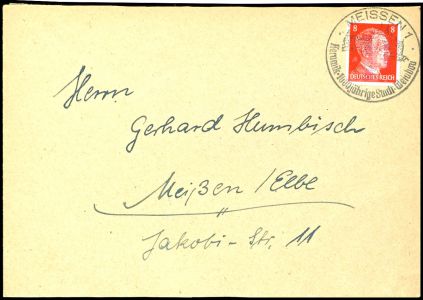 MEISSEN 1
Keramik · 1000jährige Stadt · Weinbau
8 8
DEUTSCHES REICH
Herrn
Gerhard Humbisch
Meißen / Elbe
Jakobi-Str. 11